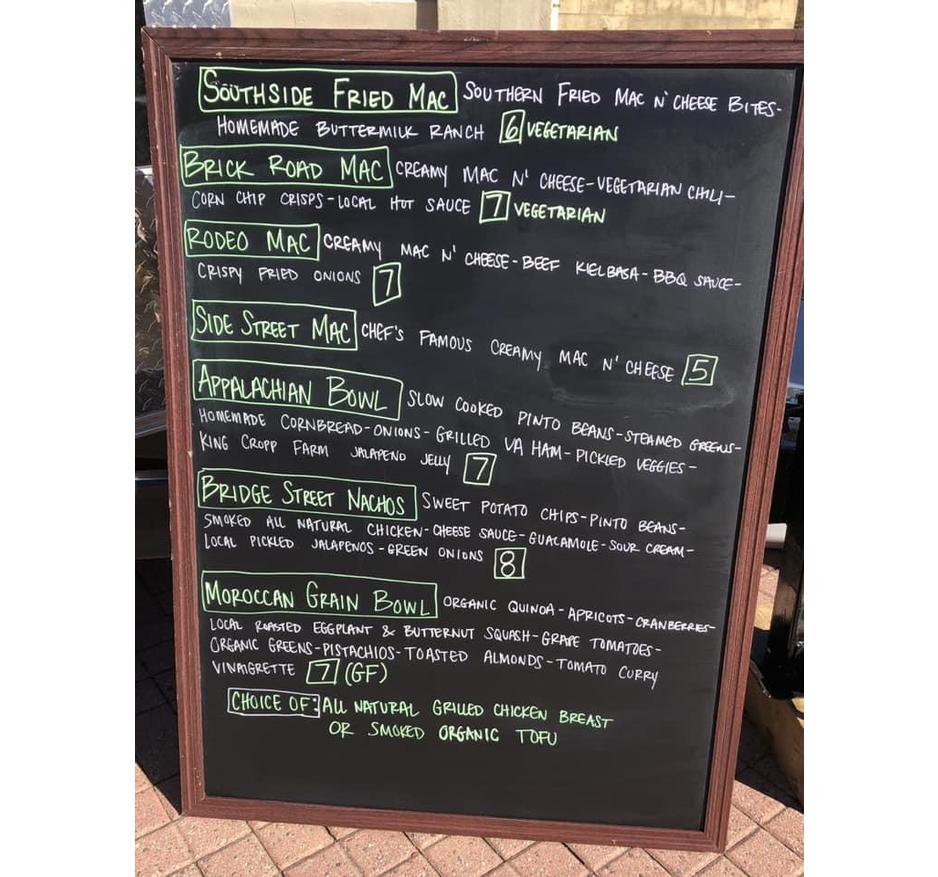 SOUTHSIDE FRIED MAC SOUTHERN FRIED MAC N' CHEESE BITES-
HOMEMADE BUTTERMILK RANCH 6 VEGETARIAN
BRICK ROAD MAC CREAMY MAC N' CHEESE-VEGETARIAN CHILI-
CORN CHIP CRISPS-LOCAL HOT SAUCE 7 VEGETARIAN
RODEO MAC CREAMY MAC N' CHEESE-BEEF KIELBASA-BBQ SAUCE-
CRISPY FRIED ONIONS 7
SIDE STREET MAC CHEF'S FAMOUS CREAMY MAC N' CHEESE 5
APPALACHIAN BOWL SLOW COOKED PINTO BEANS-STEAMED GREENS-
HOMEMADE CORNBREAD-ONIONS-GRILLED VA HAM-PICKLED VEGGIES-
KING CROPP FARM JALAPENO JELLY 7
BRIDGE STREET NACHOS SWEET POTATO CHIPS-PINTO BEANS-
SMOKED ALL NATURAL CHICKEN-CHEESE SAUCE-GUACAMOLE-SOUR CREAM-
LOCAL PICKLED JALAPENOS-GREEN ONIONS 8
MOROCCAN GRAIN BOWL ORGANIC QUINOA-APRICOTS-CRANBERRIES-
LOCAL ROASTED EGGPLANT & BUTTERNUT SQUASH-GRAPE TOMATOES-
ORGANIC GREENS-PISTACHIOS-TOASTED ALMONDS-TOMATO CURRY
VINAIGRETTE 7 (GF)
CHOICE OF: ALL NATURAL GRILLED CHICKEN BREAST
OR SMOKED ORGANIC TOFU